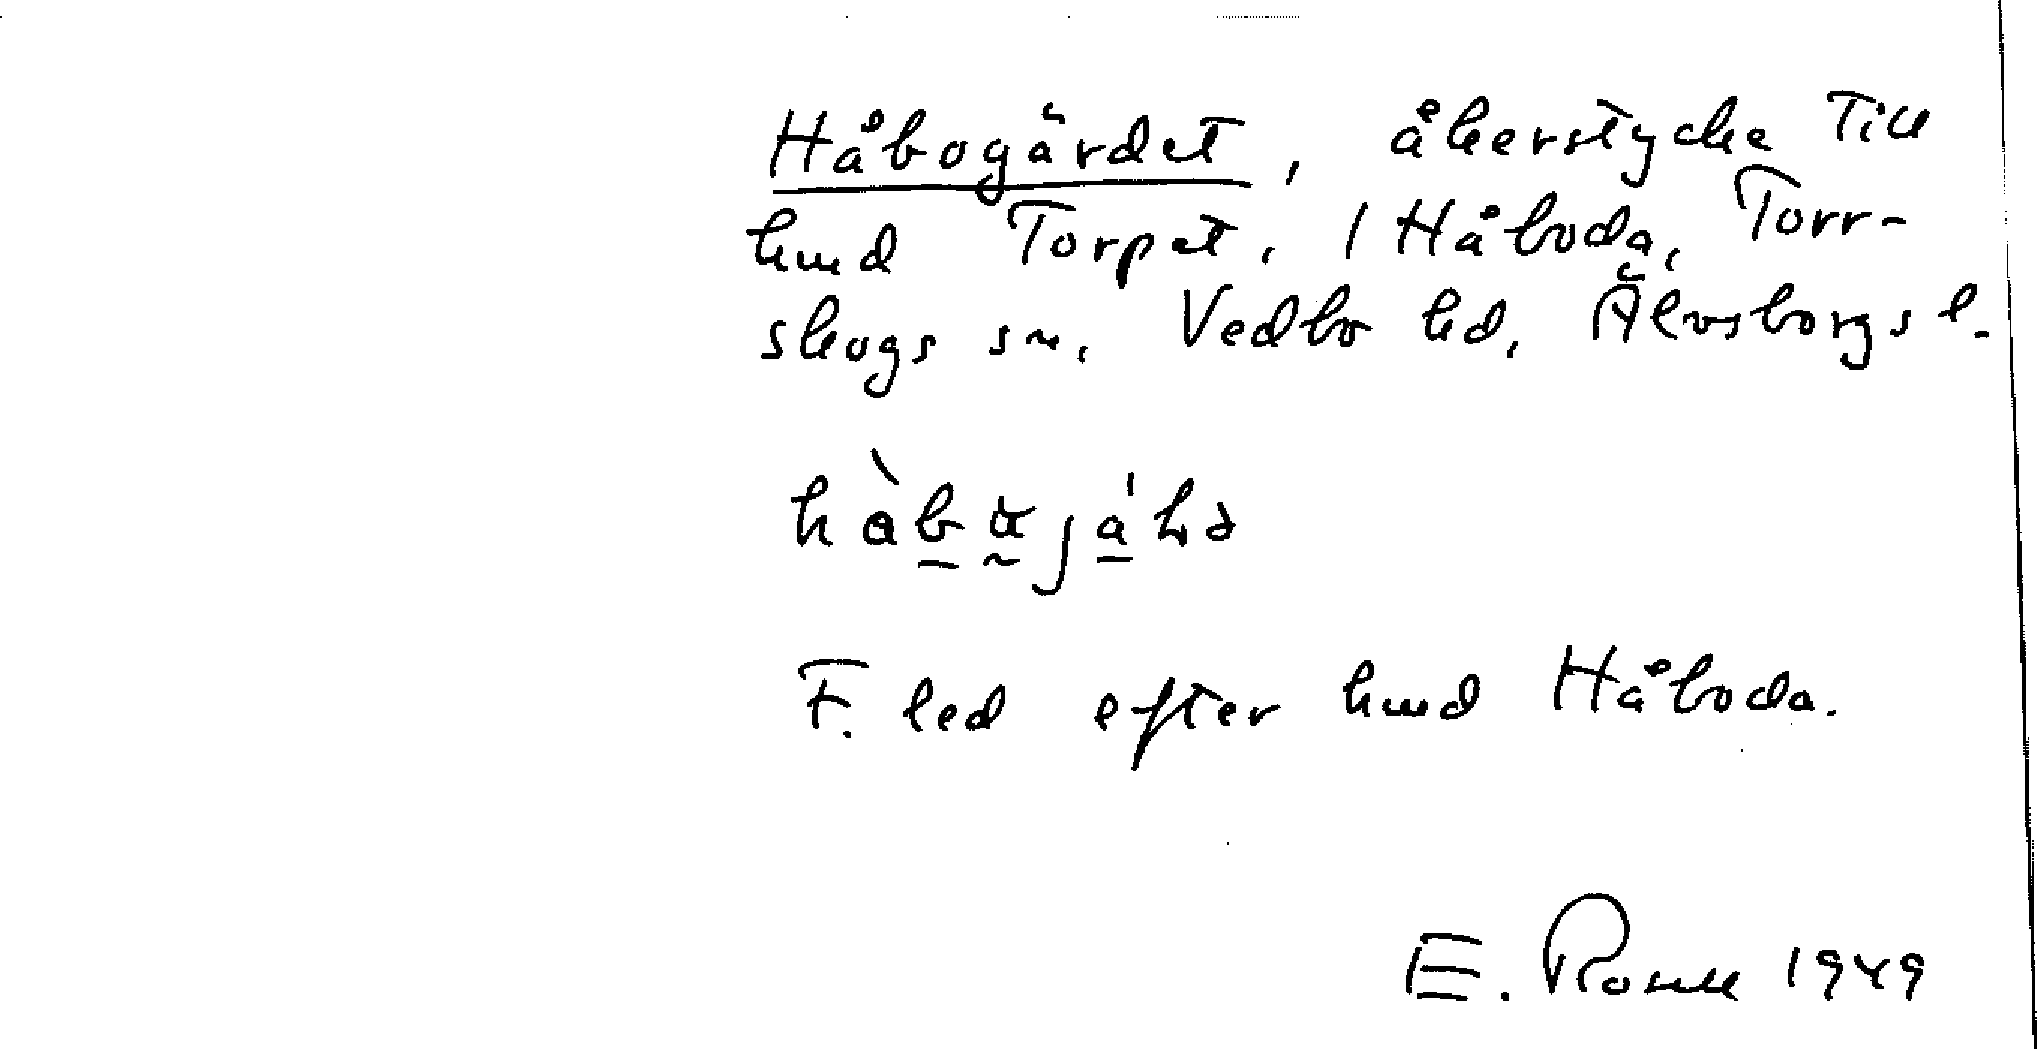 Håbogärdet, åkerstycke till
hmd Torpet, 1 Håboda, Torr-
skogs sn, Vedbo hd, Älvsborgs l.
F. led efter hmd Håboda.
E. 1949